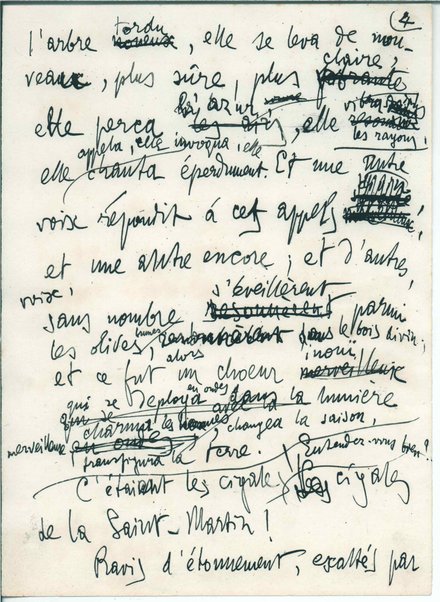 4
l'arbre tordu noueux, elle se leva de nou-
veau, plus sûre, plus claire,
elle perça l'azur les airs, elle vibra dans
les rayons,
appela, elle invoqua, elle
elle chanta éperdument. Et une autre
voix répondit à cet appel,
et une autre encore ; et d'autres
voix,
s'éveillèrent
sans nombre résonnèrent parmi
les olives, dans le bois divin,
et alors ce fut un chœur inouï
merveilleux
qui se déploya en ondes dans la lumière
qui charma les avec la changea la saison,
merveilleux en onde
transfigura la terre. Entendez-vous bien ?
C'étaient les cigales, les cigales
de la Saint-Martin !
Ravis d'étonnement, exaltés par